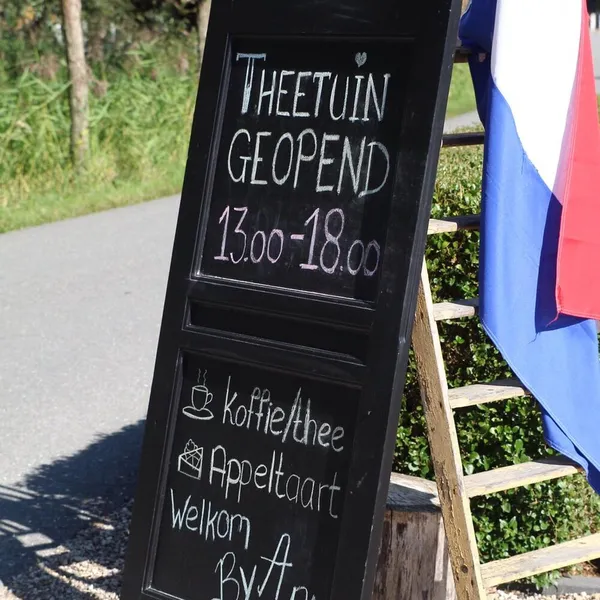 THEETUIN
GEOPEND
13.00-18.00
koffie/thee
Appeltaart
Welkom
By An